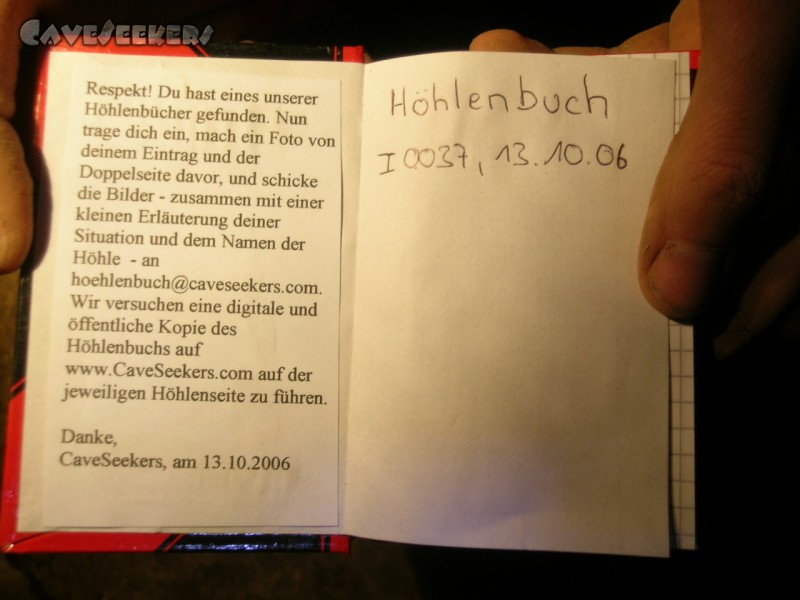 CAVESEEKERS
Respekt! Du hast eines unserer
Höhlenbücher gefunden. Nun
trage dich ein, mach ein Foto von
deinem Eintrag und der
Doppelseite davor, und schicke
die Bilder - zusammen mit einer
kleinen Erläuterung deiner
Situation und dem Namen der
Höhle - an
hoehlenbuch@caveseekers.com.
Wir versuchen eine digitale und
öffentliche Kopie des
Höhlenbuchs auf
www.CaveSeekers.com auf der
jeweiligen Höhlenseite zu führen.
Danke,
CaveSeekers, am 13.10.2006
Höhlenbuch
I0037, 13.10.06